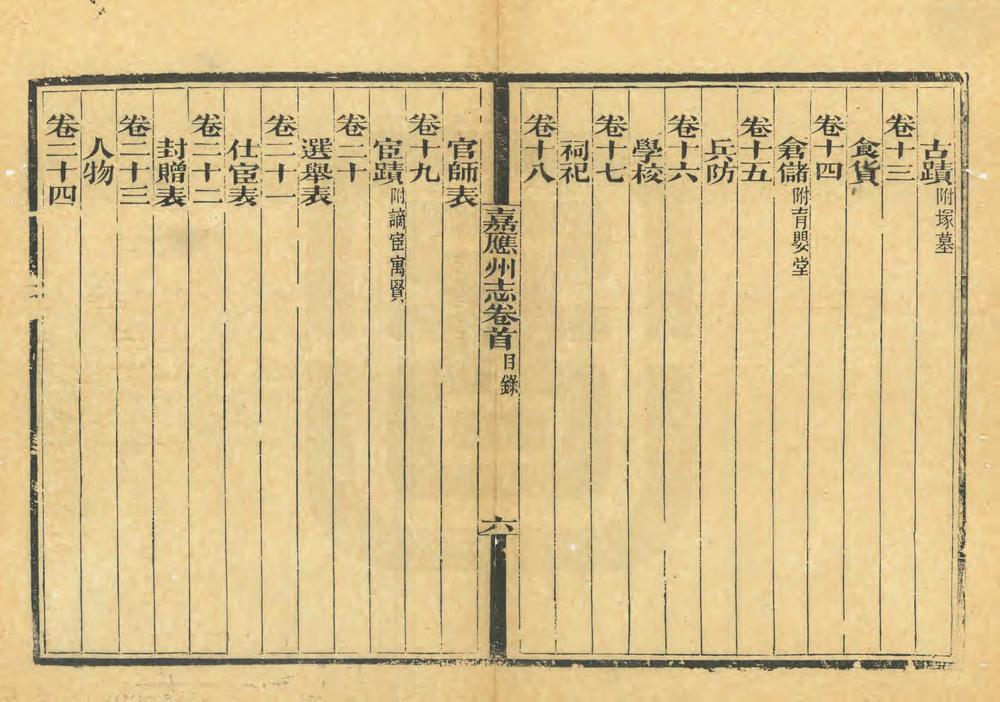 古蹟附塚墓
卷十三
食貨
卷十四
倉儲附育嬰堂
卷十五
兵防
卷十六
學校
卷十七
祠祀
卷十八
嘉應州志卷首目錄
六
官師表
卷十九
宦蹟附謫宦寓賢
卷二十
選舉表
卷二十一
仕宦表
卷二十二
封贈表
卷二十三
人物
卷二十四